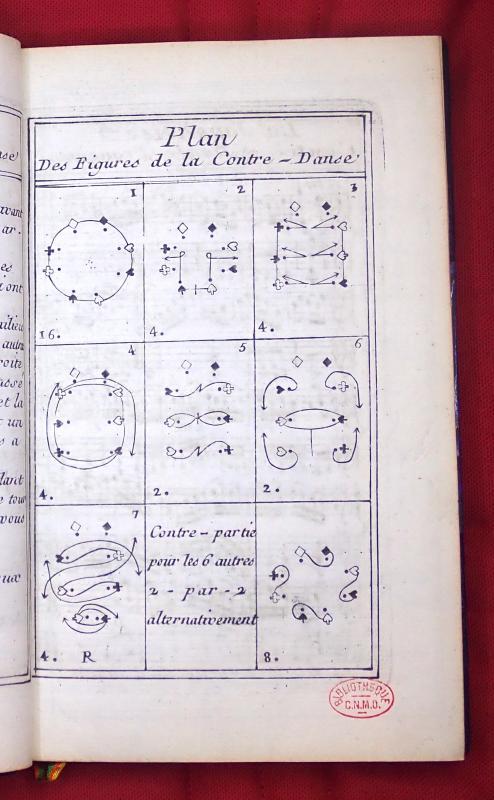 Plan
Des Figures de la Contre - Danse
1
16.
2
4.
3
4.
4
4.
5
2.
6
2.
7
4. R
Contre - partie
pour les 6 autres
2 - par - 2
alternativement
8.
BIBLIOTHEQUE
C.N.M.D.